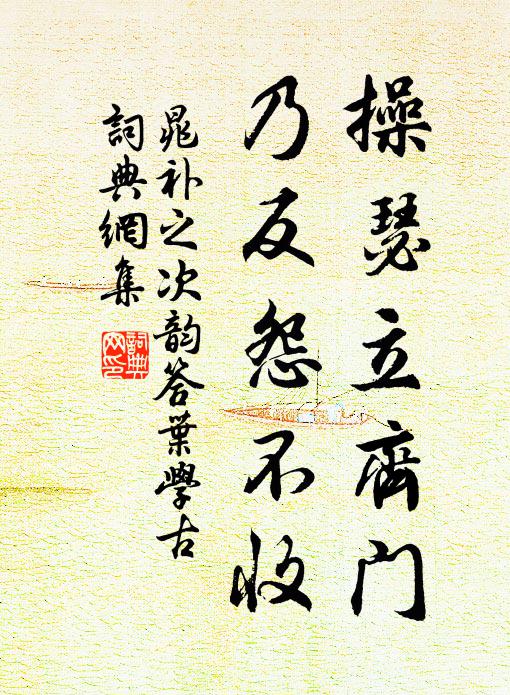 操瑟立齊門
乃反怨不收
晁补之次韵答葉學古
詞典網集
詞典
网印